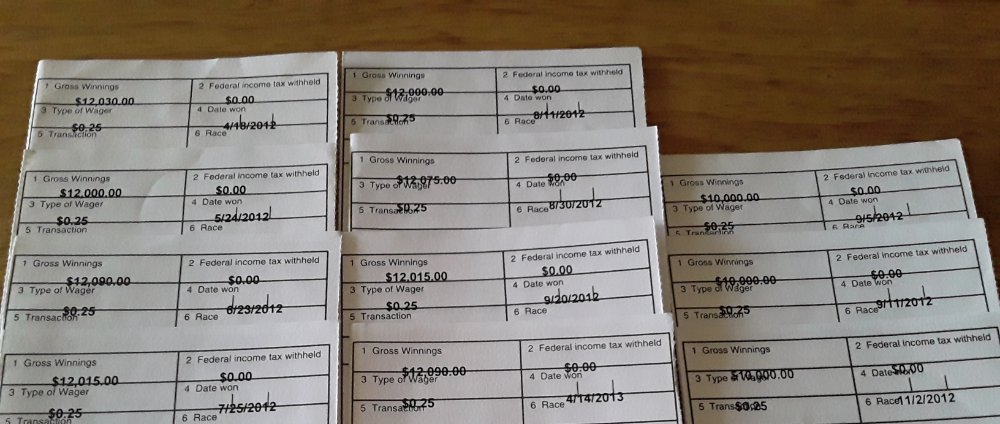 1 Gross Winnings 2 Federal income tax withheld
$12,030.00 $0.00
3 Type of Wager 4 Date won
$0.25 4/18/2012
5 Transaction 6 Race
1 Gross Winnings 2 Federal income tax withheld
$12,000.00 $0.00
3 Type of Wager 4 Date won
$0.25 5/24/2012
5 Transaction 6 Race
1 Gross Winnings 2 Federal income tax withheld
$12,090.00 $0.00
3 Type of Wager 4 Date won
$0.25 6/23/2012
5 Transaction 6 Race
1 Gross Winnings 2 Federal income tax withheld
$12,015.00 $0.00
3 Type of Wager 4 Date won
$0.25 7/25/2012
5 Transaction 6 Race
1 Gross Winnings 2 Federal income tax withheld
$12,000.00 $0.00
3 Type of Wager 4 Date won
$0.25 8/11/2012
5 Transaction 6 Race
1 Gross Winnings 2 Federal income tax withheld
$12,075.00 $0.00
3 Type of Wager 4 Date won
$0.25 8/30/2012
5 Transaction 6 Race
1 Gross Winnings 2 Federal income tax withheld
$12,015.00 $0.00
3 Type of Wager 4 Date won
$0.25 9/20/2012
5 Transaction 6 Race
1 Gross Winnings 2 Federal income tax withheld
$12,090.00 $0.00
3 Type of Wager 4 Date won
$0.25 4/14/2013
5 Transaction 6 Race
1 Gross Winnings 2 Federal income tax withheld
$10,000.00 $0.00
3 Type of Wager 4 Date won
$0.25 9/5/2012
5 Transaction 6 Race
1 Gross Winnings 2 Federal income tax withheld
$10,000.00 $0.00
3 Type of Wager 4 Date won
$0.25 9/11/2012
5 Transaction 6 Race
1 Gross Winnings 2 Federal income tax withheld
$10,000.00 $0.00
3 Type of Wager 4 Date won
$0.25 11/2/2012
5 Transaction 6 Race